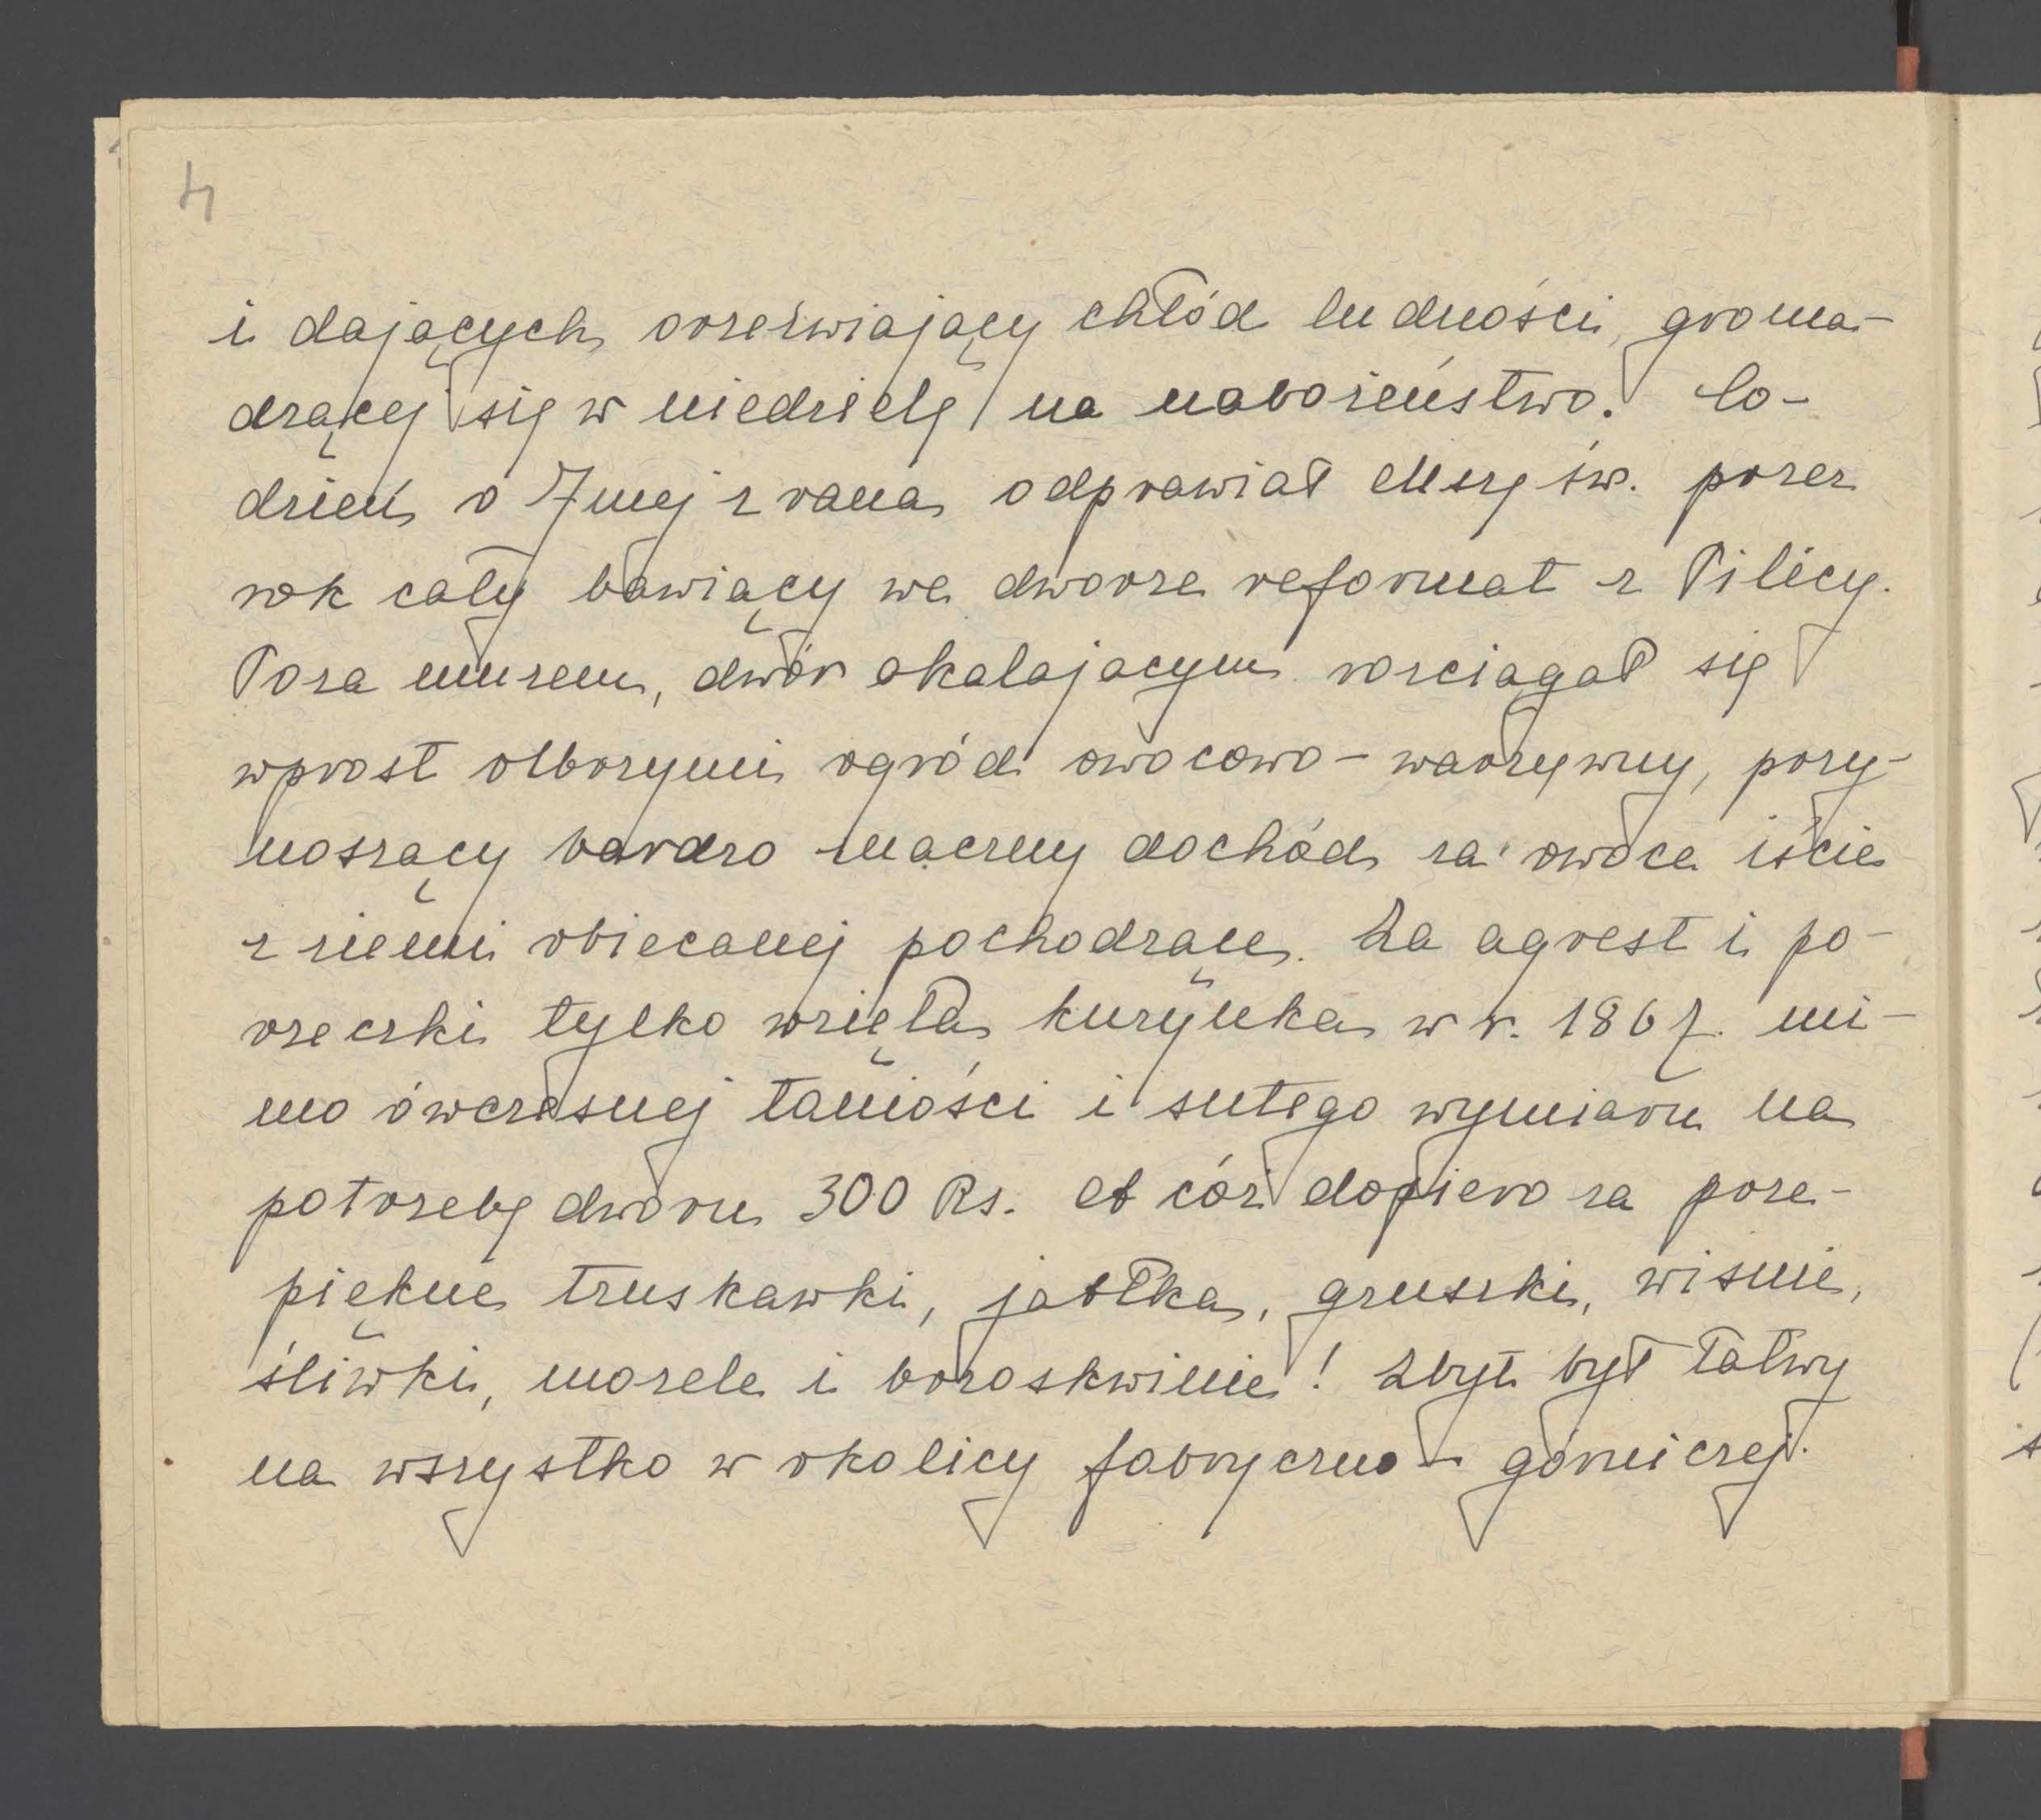 4
i dających orzeźwiający chłód ludności, groma-
dzącej się w niedzielę na nabożeństwo. Co-
dzień o 7mej z rana odprawiał Mszę św. przez
rok cały bawiący we dworze reformat z Pilicy.
Poza murem, dwór okalajacym rozciągał się
wprost olbrzymi ogród owocowo-warzywny, przy-
noszący bardzo znaczny dochód za owoce iście
z ziemi obiecanej pochodzące. Za agrest i po-
rzeczki tylko wzięła kuzynka w r. 1867. mi-
mo ówczesnej taniości i sutego wymiaru na
potrzeby dworu 300 Rs. A cóż dopiero za prze-
piękne truskawki, jabłka, gruszki, wiśnie,
śliwki, morele i brzoskwinie! Zbyt był łatwy
na wszystko w okolicy fabryczno-górniczej.